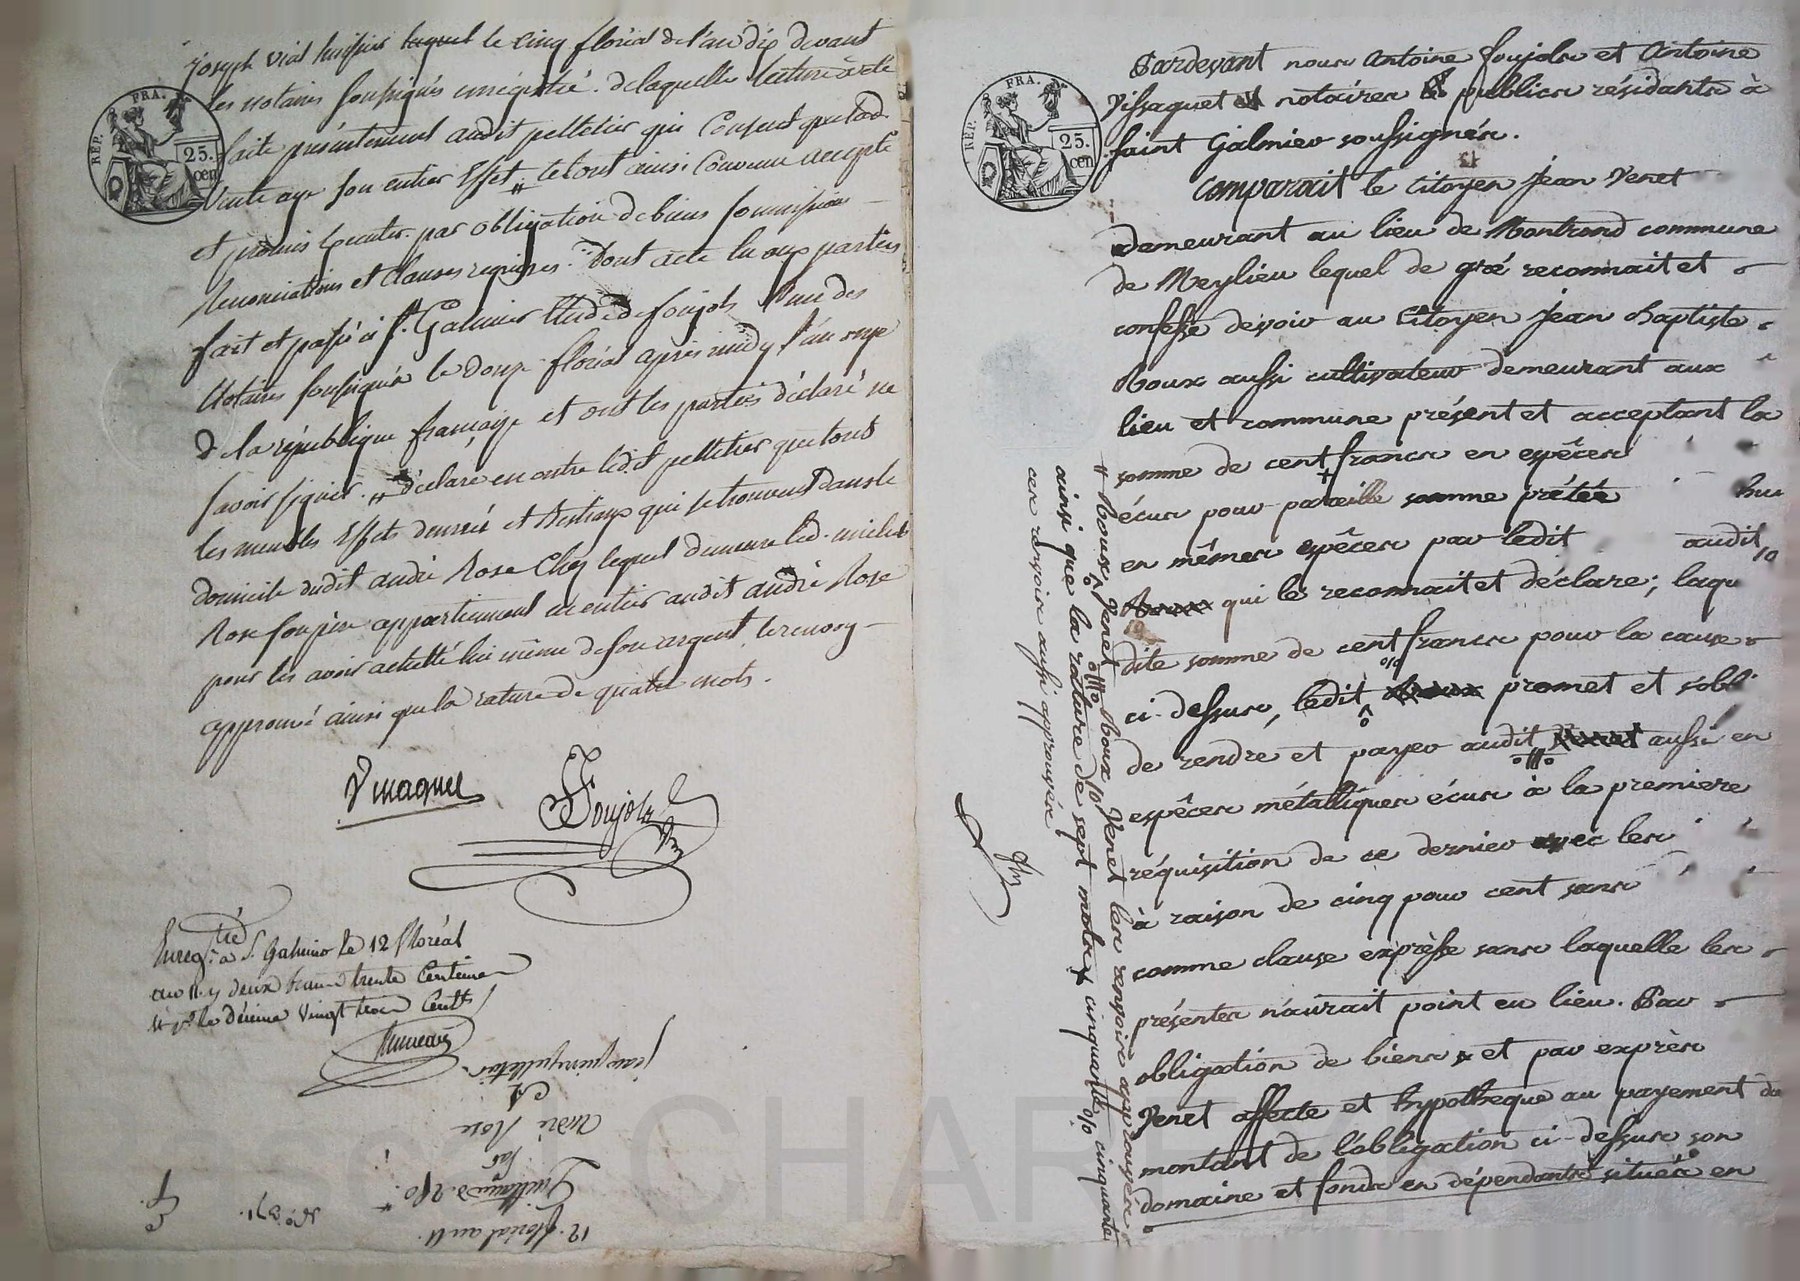 joseph vial huissier laquel le cinq floréal de l'an dix devant
les notaires soussignés enregistré. de laquelle lecture a été
faite présentement audit pelletier qui Consent que lad.
Vente aye son entier Effet. le tout ainsi Convenu accepté
et promis Exécuter par obligation de biens soumissions
Renonciations et Clauses requises. Dont acte lu aux parties
fait et passé à St. Galmier Etude de foujols l'un des
Notaires soussignés le Douze floréal après midy l'an onze
de la république française et ont les parties déclaré ne
savoir signer. Déclare en outre ledit pelletier que tous
les meubles Effets denrées et Bestiaux qui se trouvent dans le
domicile dudit andré Rose Chez lequel demeure led. michel
Rose son père appartiennent en entier audit andré Rose
pour les avoir acheté lui même de son argent, le renvoy
approuvé ainsi que la rature de quatre mots.
Foujols
REP. FRA.
25.
cen
Enregtré à St. Galmier le 12 floréal
an 11. deux francs trente Centimes
et pr. le décime Vingt trois Cents
pelletier
A
andré Rose
Par
12. floréal an 11.
No. 371.
REP. FRA.
25.
cen
Pardevant nous Antoine foujols et Antoine
Vissaguet notaires publics résidants à
saint Galmier soussignés.
Comparait le Citoyen Jean Venet
demeurant au lieu de Montrond commune
de Meylieu lequel de gré reconnait et
confesse devoir au Citoyen Jean Baptiste
Roux aussi cultivateur demeurant aux
lieu et commune présent et acceptant la
somme de cent francs en espêces
écus pour pareille somme prêtée
en mêmes espêces par ledit audit
Roux qui le reconnait et déclare; laqu
dite somme de cent francs pour la cause
ci-dessus, ledit Roux promet et s'obli
de rendre et payer audit Venet aussi en
espêces métalliques écus à la premiere
réquisition de ce dernier avec les
à raison de cinq pour cent sans
comme clause expresse sans laquelle les
présentes n'aurait point eu lieu. Par
obligation de biens et par exprès
Venet affecte et hypothèque au payement du
montant de l'obligation ci-dessus son
domaine et fonds en dépendants situés en
Roux, Venet Roux Venet les renvoirs approuvés
ainsi que la rature de sept mots cinquante cinquante
ces renvoirs aussi approuvés